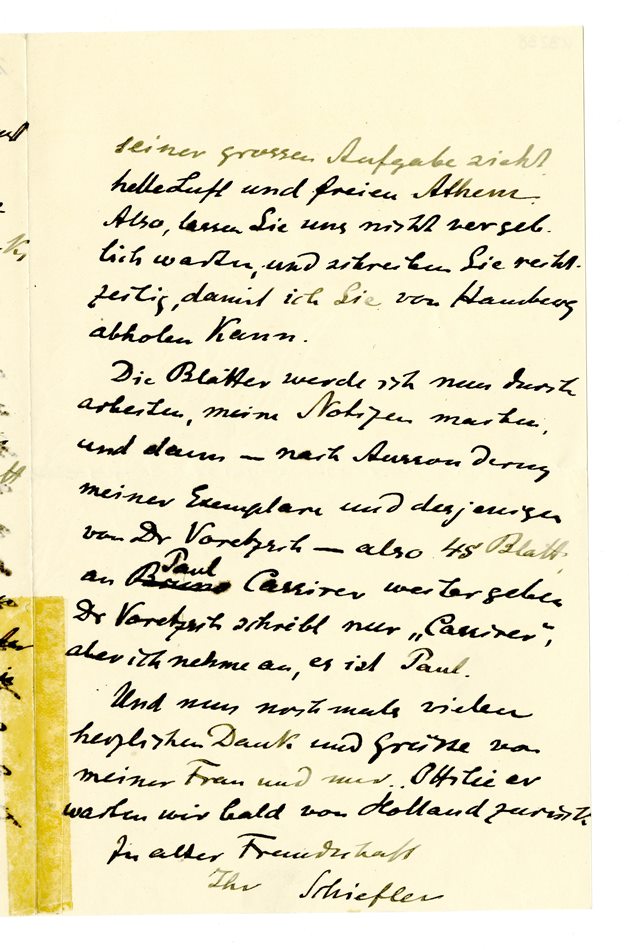 seiner grossen Aufgabe zieht
helle Luft und freien Athem.
Also, lassen Sie uns nicht vergeb-
lich warten, und schreiben Sie recht-
zeitig, damit ich Sie von Hamburg
abholen kann.
Die Blätter werde ich nun durch
arbeiten, meine Notizen machen,
und dann — nach Aussonderung
meiner Exemplare und desjenigen
von Dr Voretzsch — also 45 Blatt,
an Bruno Paul Cassirer weitergeben
Dr Voretzsch schreibt nur „Cassirer",
aber ich nehme an, es ist Paul.
Und nun nochmals vielen
herzlichen Dank und Grüsse von
meiner Frau und mir. Ottilie er
warten wir bald von Holland zurück
In alter Freundschaft
Ihr Schiefler